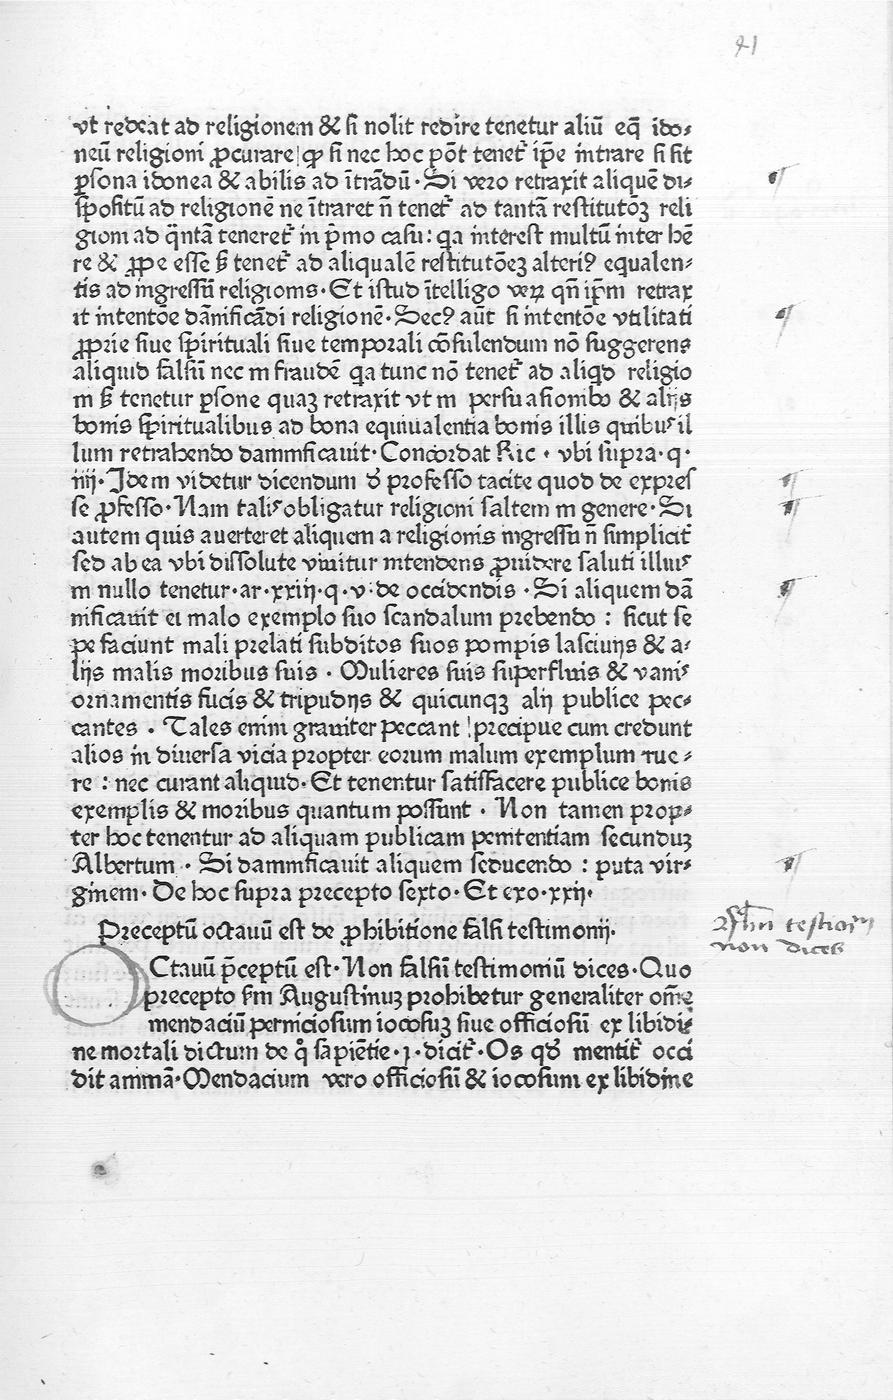 41
vt redeat ad religionem & si nolit redire tenetur aliū eq̄ ido⸗
neū religioni ꝓcurare| ꝙ si nec hoc p̄ōt tenet᷑ ip̄e intrare si sit
ꝑsona idonea & abilis ad ītrādū · Si vero retraxit aliquē di⸗
spositū ad religionē ne ītraret n̄ tenet᷑ ad tantā restitutōꝫ reli
gioni ad q̄ntā teneret᷑ in p̄mo casu: qa interest multū inter hē
re & ꝓpe esse sꝫ tenet᷑ ad aliqualē restitutōeꝫ alteriꝰ equalen⸗
tis ad ingressū religionis · Et istud ītelligo veꝝ qn̄ ip̄m retrax
it intentōe dānificādi religionē · Secꝰ aūt si intentōe vtilitati
ꝓprie siue spirituali siue temporali cōsulendum nō suggerens
aliquid falsū nec in fraudē qa tunc nō tenet᷑ ad aliqd religio
ni sꝫ tenetur ꝑsone quaꝫ retraxit vt in persuasionibo & alijs
bonis spiritualibus ad bona equiualentia bonis illis quibus il
lum retrahendo damnificauit · Concordat Ric · vbi supra · q ·
iiij · Idem videtur dicendum ꝺ̄ professo tacite quod de expres
se ꝓfesso · Nam talis obligatur religioni saltem in genere · Si
autem quis auerteret aliquem a religionis ingressu n̄ simplicit᷑
sed ab ea vbi dissolute viuitur intendens ꝓuidere saluti illius
in nullo tenetur · ar · xxiij · q · v · de occidendis · Si aliquem dā
nificauit ei malo exemplo suo scandalum prebendo : sicut se
pe faciunt mali prelati subditos suos pompis lasciuijs & a⸗
lijs malis moribus suis · Mulieres suis superfluis & vanis
ornamentis fucis & tripudijs & quicunqꝫ alij publice pec⸗
cantes · Tales enim grauiter peccant | precipue cum credunt
alios in diuersa vicia propter eorum malum exemplum rue⸗
re : nec curant aliquid · Et tenentur satisfacere publice bonis
exemplis & moribus quantum possunt · Non tamen prop⸗
ter hoc tenentur ad aliquam publicam penitentiam secunduꝫ
Albertum · Si damnificauit aliquem seducendo : puta vir⸗
ginem · De hoc supra precepto sexto · Et exo · xxij ·
Preceptū octauū est de ꝓhibitione falsi testimonij ·
non dices
Ctauū p̄ceptū est · Non falsū testimoniū dices · Quo
precepto sm̄ Augustinuꝫ prohibetur generaliter om̄e
mendaciū perniciosum iocosuꝫ siue officiosū ex libidi⸗
ne mortali dictum de q̊ sapiētie · j · dicit᷑ · Os qꝺ̄ mentit᷑ occi
dit animā · Mendacium vero officiosū & iocosum ex libidine